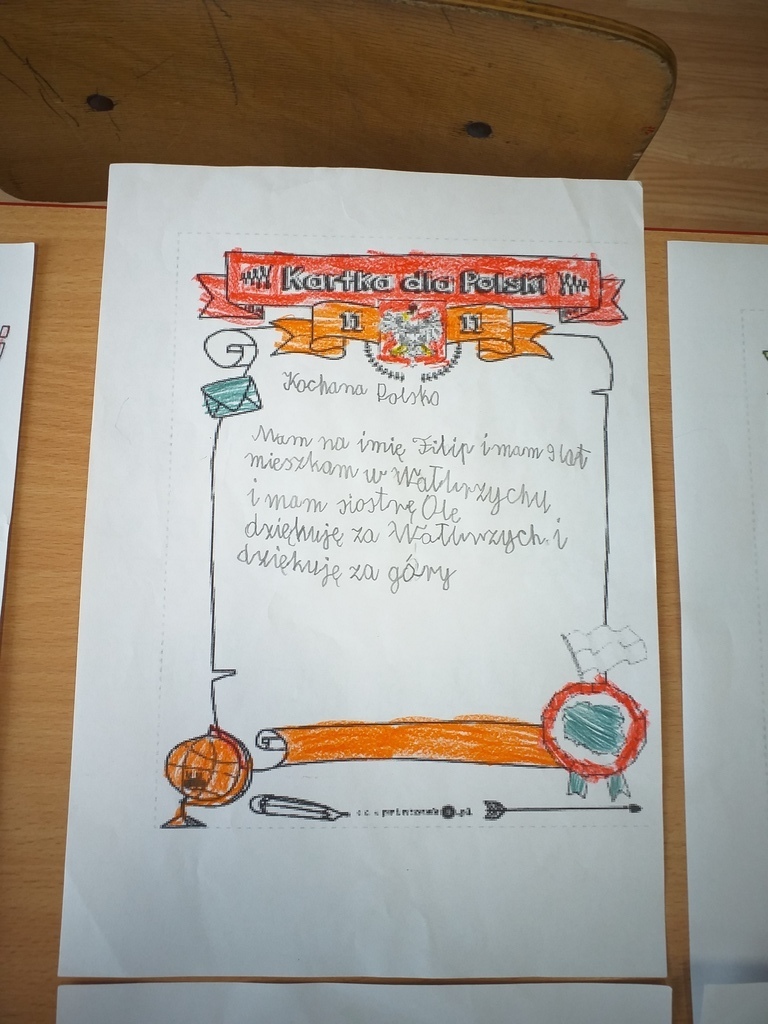 Kartka dla Polski
11 11
Kochana Polsko
Mam na imię Filip i mam 9 lat
mieszkam w Wałbrzychu
i mam siostrę Olę
dziękuję za Wałbrzych i
dziękuję za góry